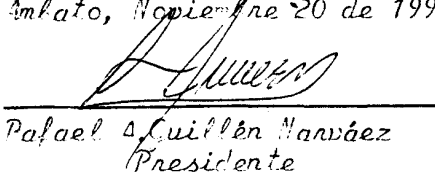 Ambato, Noviembre 20 de 199
Rafael A. Guillén Narváez
Presidente